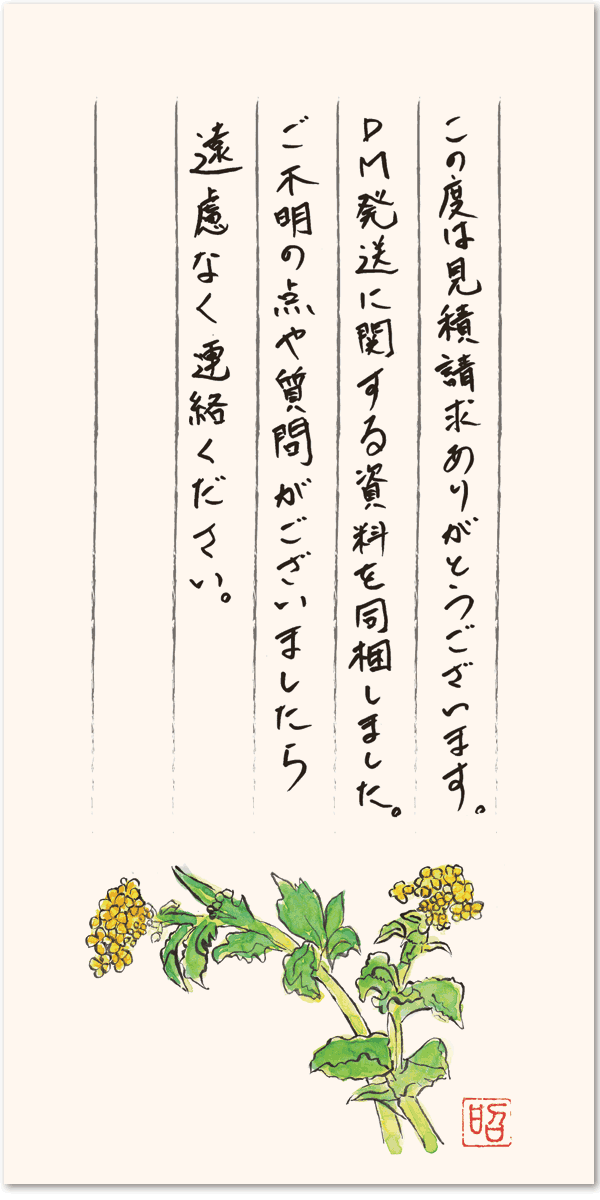 この度は見積請求ありがとうございます。
DM発送に関する資料を同梱しました。
ご不明の点や質問がございましたら
遠慮なく連絡ください。
昭